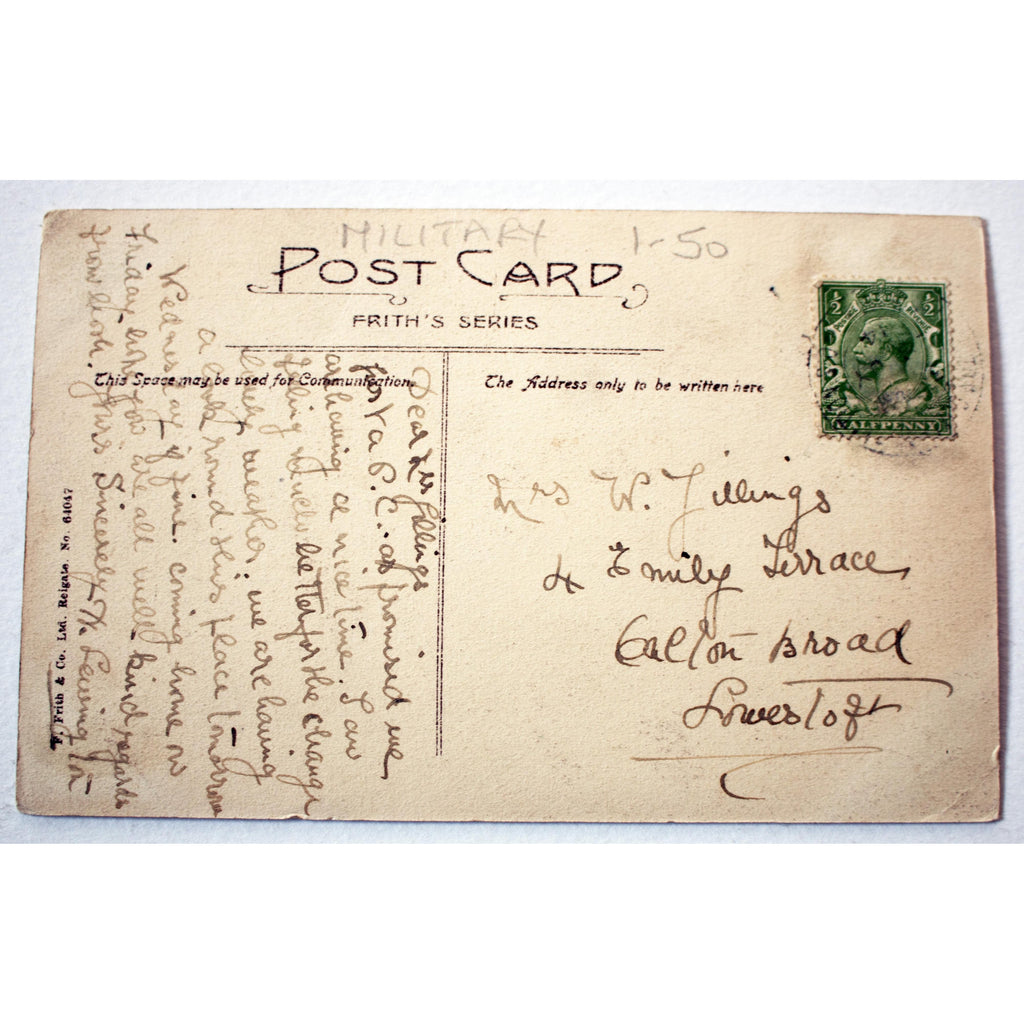 MILITARY 1-50
POST CARD
FRITH'S SERIES
This Space may be used for Communication.
The Address only to be written here
½ ½
POSTAGE REVENUE
HALFPENNY
Mrs W. Jillings
4 Emily Terrace,
Oulton Broad
Lowestoft
Dear Mrs Jillings
Just a P.C. as promised we
are having a nice time. I am
feeling much better for the change
lovely weather, we are having
a look round this place tomorrow
Wednesday if fine. coming home on
Friday hope you are all well kind regards
from both. Yours Sincerely
F. Frith & Co. Ltd. Reigate. No. 64047